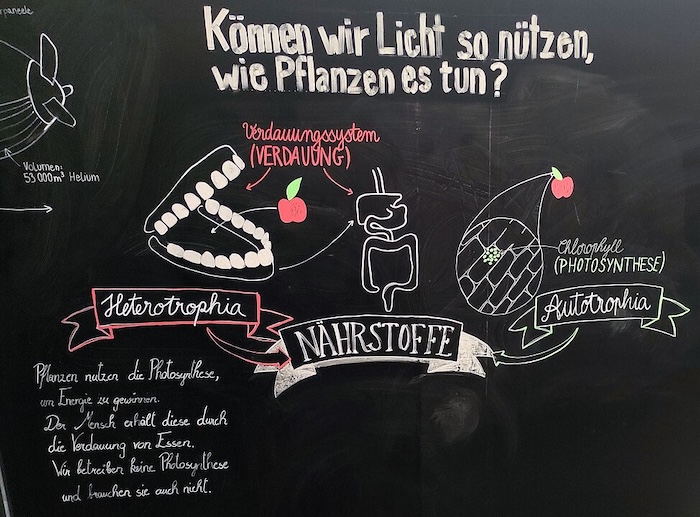 rpaneele
Volumen:
53 000m³ Helium
Können wir Licht so nützen,
wie Pflanzen es tun?
Verdauungssystem
(VERDAUUNG)
Chlorophyll
(PHOTOSYNTHESE)
Heterotrophia
Autotrophia
NÄHRSTOFFE
Pflanzen nutzen die Photosynthese,
um Energie zu gewinnen.
Der Mensch erhält diese durch
die Verdauung von Essen.
Wir betreiben keine Photosynthese
und brauchen sie auch nicht.